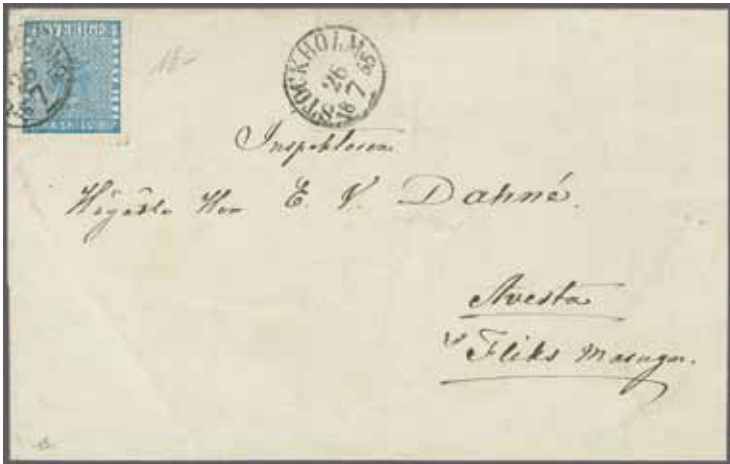 SVERIGE
STOCKHOLM
26
7
18
Inspektoren
Högädle Herr E. V. Dahné.
Avesta
Fliks Masugn.